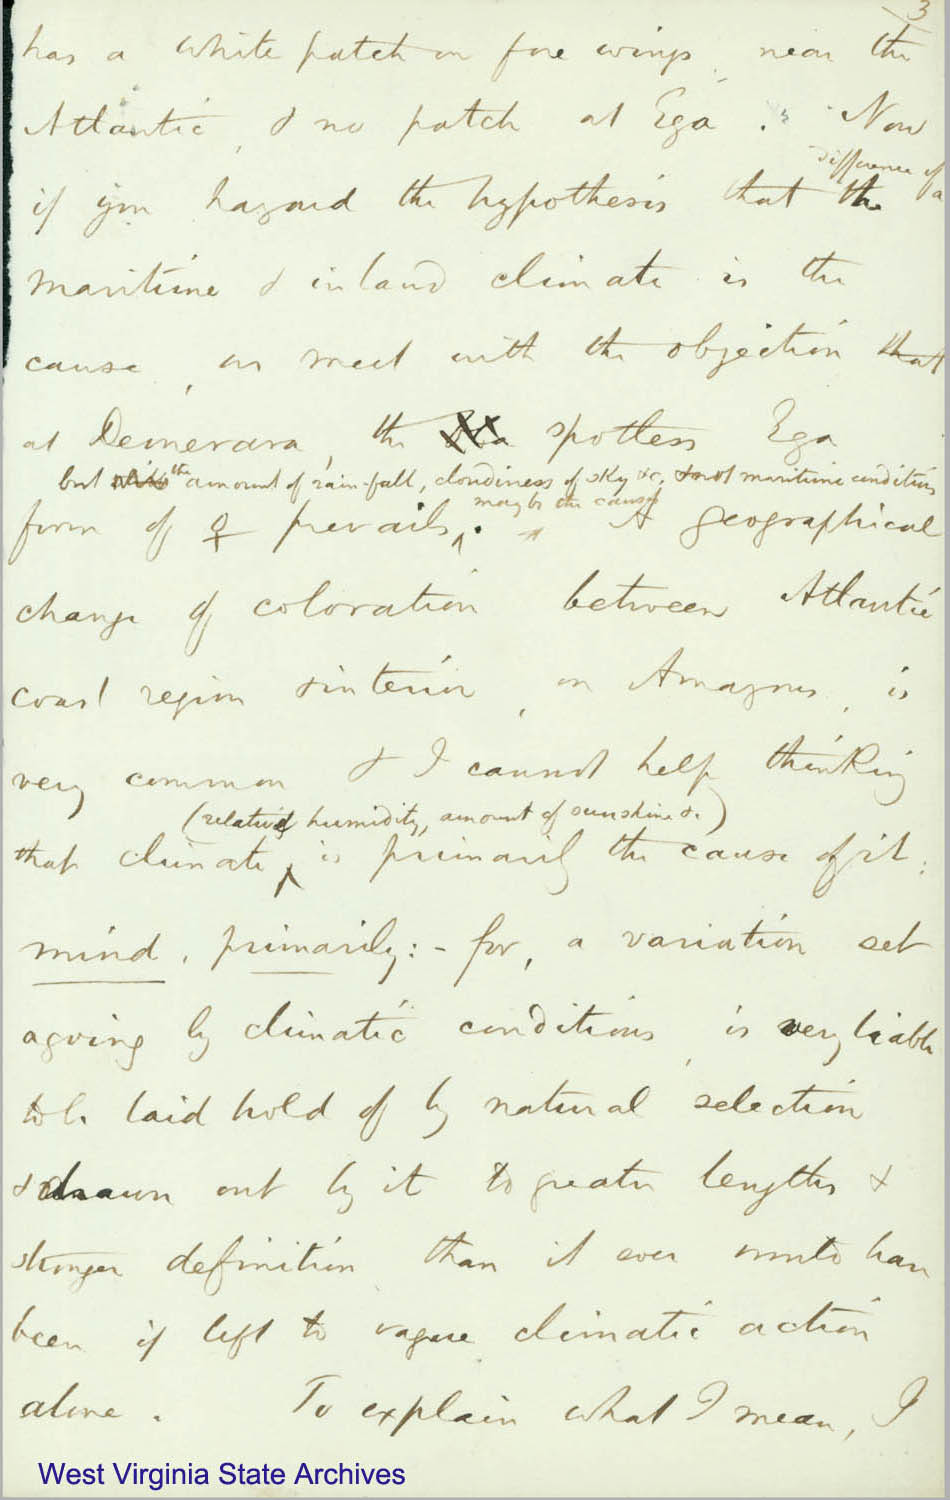 3
has a white patch on fore wings, near the
Atlantic, & no patch at Ega. Now
difference of a
if you hazard the hypothesis that the
maritime & inland climate is the
cause, we meet with the objection that
at Demerara, the spotless Ega
but the amount of rain-fall, cloudiness of sky &c, & not maritime conditions
may be the cause
form of ♀ prevails. A geographical
change of coloration between Atlantic
coast region & interior, on Amazons, is
very common & I cannot help thinking
(relative humidity, amount of sunshine &c)
that climate is primarily the cause of it:
mind, primarily:- for, a variation set
agoing by climatic conditions, is very liable
to be laid hold of by natural selection
& drawn out by it to greater lengths &
stronger definition than it ever would have
been if left to vague climatic action
alone. To explain what I mean, I
West Virginia State Archives